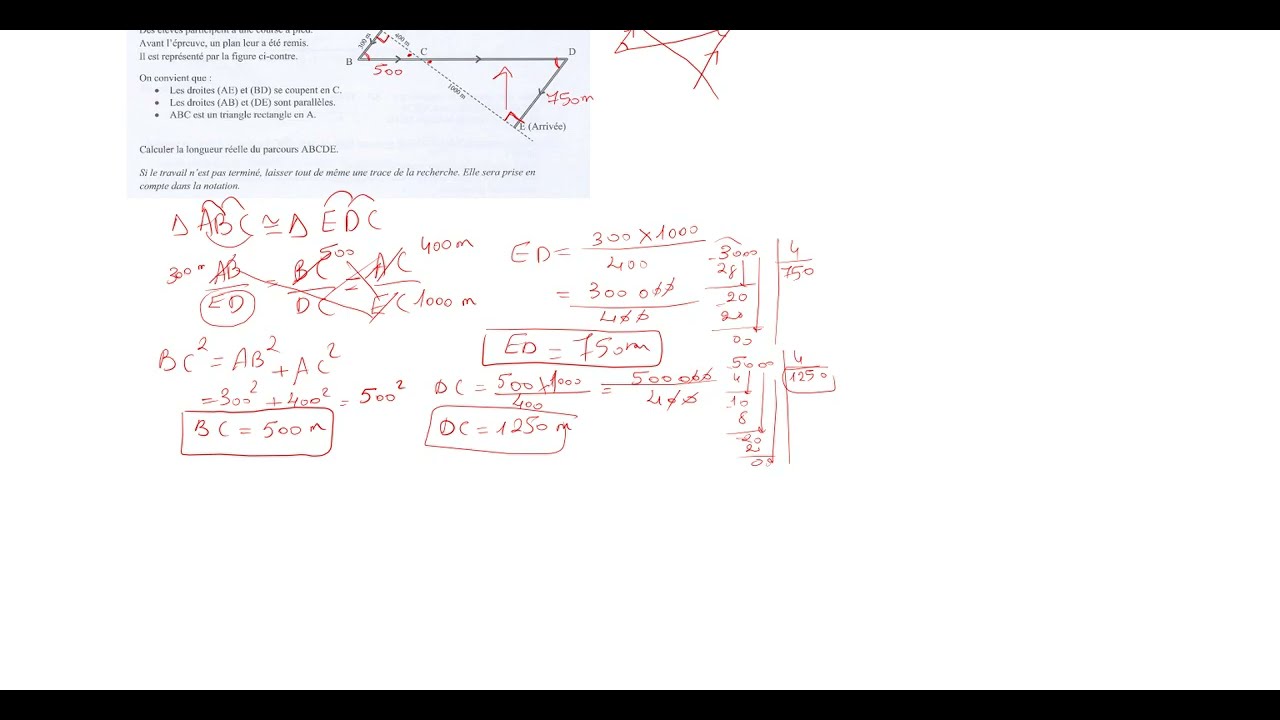 Des élèves participent à une course à pied.
Avant l'épreuve, un plan leur a été remis.
Il est représenté par la figure ci-contre.
On convient que :
• Les droites (AE) et (BD) se coupent en C.
• Les droites (AB) et (DE) sont parallèles.
• ABC est un triangle rectangle en A.
Calculer la longueur réelle du parcours ABCDE.
Si le travail n'est pas terminé, laisser tout de même une trace de la recherche. Elle sera prise en
compte dans la notation.
300 m
400 m
B
C
D
500
1000 m
750m
E (Arrivée)
Δ ABC ≅ Δ EDC
300 m AB/ED = BC/DC = AC/EC
500
400 m
1000 m
BC² = AB² + AC²
= 300² + 400² = 500²
BC = 500 m
ED = 300 × 1000 / 400
= 300 000 / 400
ED = 750m
DC = 500 × 1000 / 400 = 500000 / 400
DC = 1250 m
3000 4
28 750
20
20
00
5000 4
4 1250
10
8
20
2
00